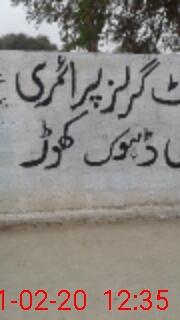 گرلز پرائمری
ڈھوک کھوڑ
1-02-20 12:35